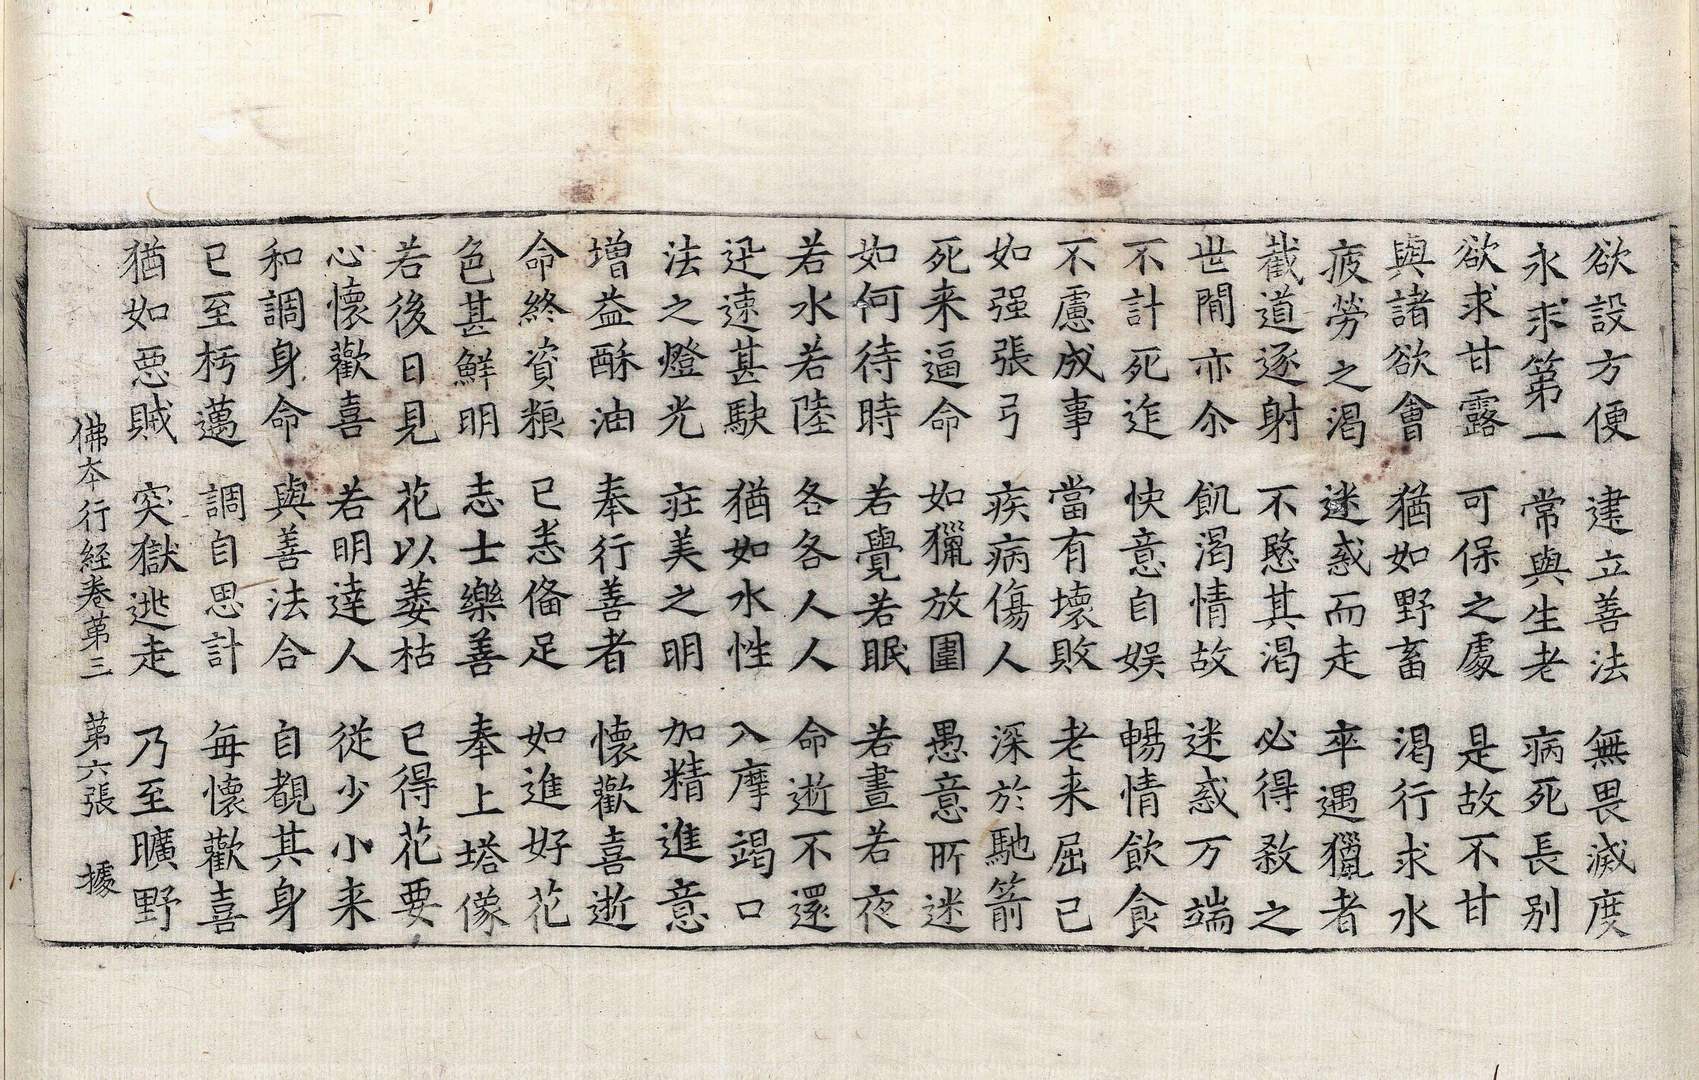 欲設方便 建立善法 無畏滅度
永求第一 常與生老 病死長別
欲求甘露 可保之處 是故不甘
與諸欲會 猶如野畜 渴行求水
疲勞之渴 迷惑而走 卒遇獵者
截道逐射 不愍其渴 必得殺之
世間亦尒 飢渴情故 迷惑万端
不計死迮 快意自娛 暢情飲食
不慮成事 當有壞敗 老来屈已
如强張弓 疾病傷人 深於馳箭
死来逼命 如獵放圍 愚意所迷
如何待時 若覺若眠 若晝若夜
若水若陸 各各人人 命逝不還
迅速甚駛 猶如水性 入摩竭口
法之燈光 莊美之明 加精進意
增益酥油 奉行善者 懷歡喜逝
命終資粮 已悉俻足 如進好花
色甚鮮明 志士樂善 奉上塔像
若後日見 花以萎枯 已得花要
心懷歡喜 若明達人 從少小来
和調身命 與善法合 自覩其身
已至朽邁 調自思計 每懷歡喜
猶如惡賊 突獄逃走 乃至曠野
佛本行経卷第三 第六張 據